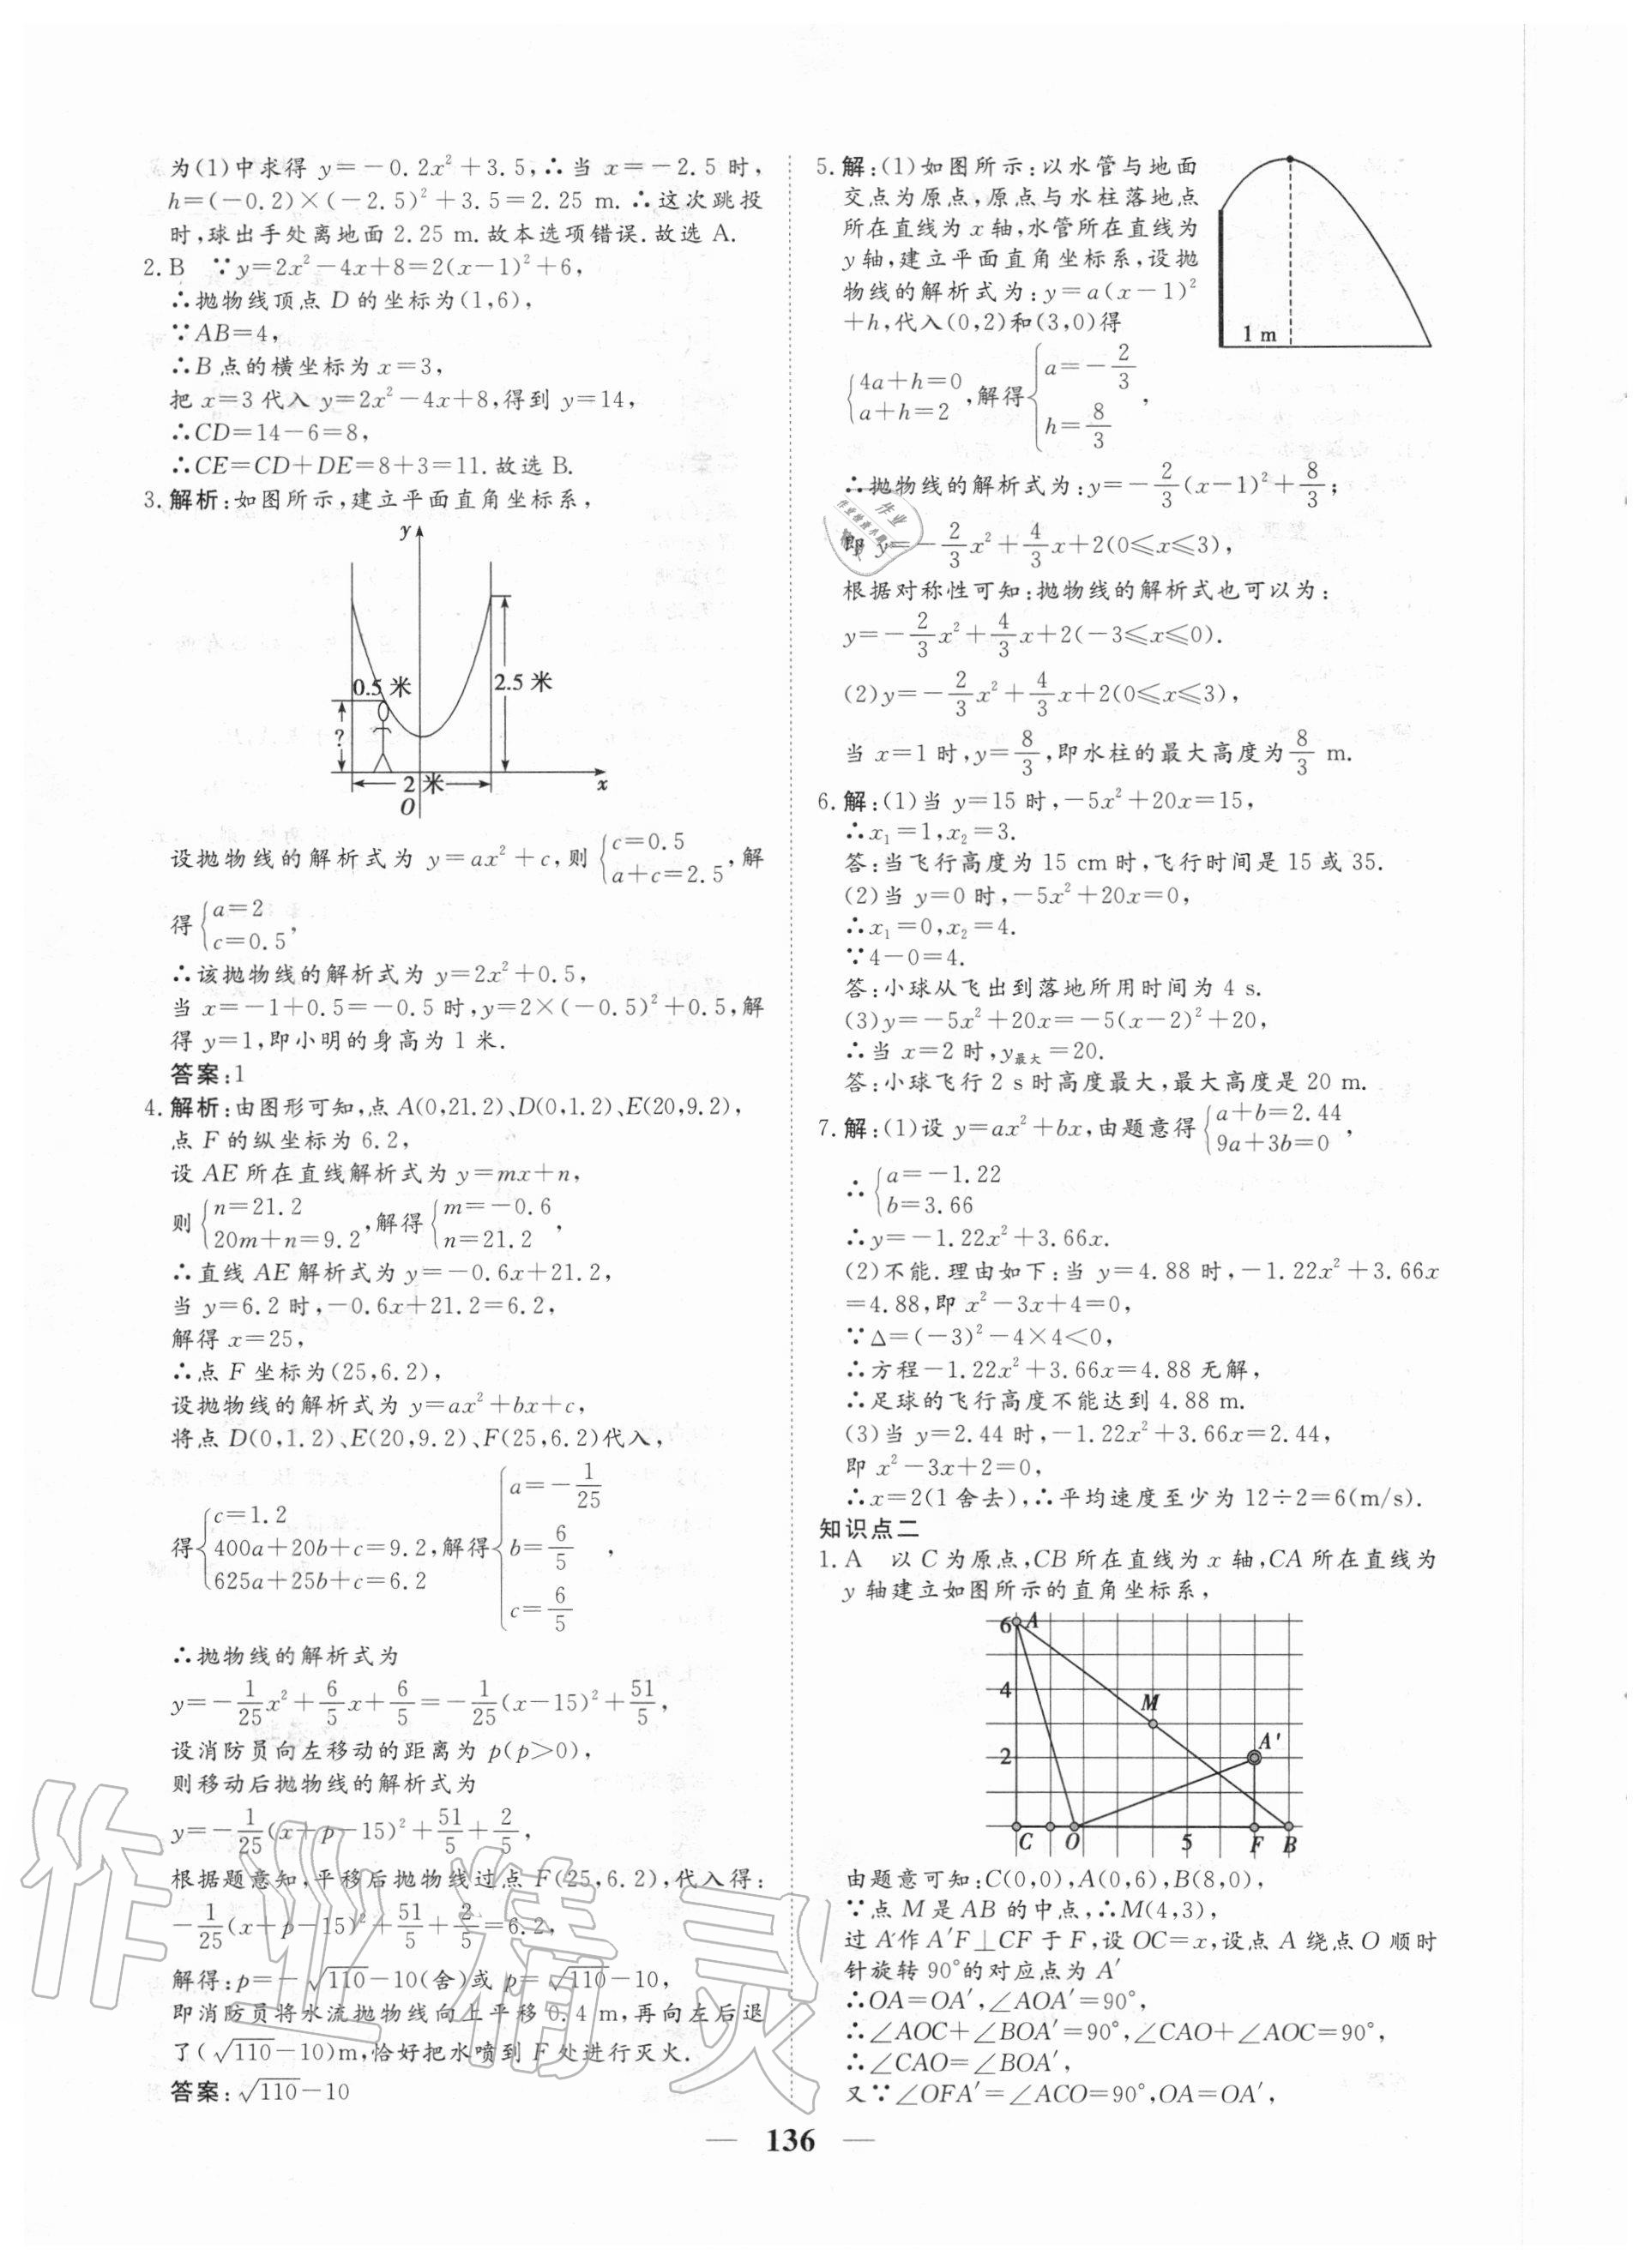 为(1)中求得 y=-0.2x²+3.5,∴当 x=-2.5 时,
h=(-0.2)×(-2.5)²+3.5=2.25 m.∴这次跳投
时,球出手处离地面 2.25 m.故本选项错误.故选 A.
2. B ∵y=2x²-4x+8=2(x-1)²+6,
∴抛物线顶点 D 的坐标为(1,6),
∵AB=4,
∴B 点的横坐标为 x=3,
把 x=3 代入 y=2x²-4x+8,得到 y=14,
∴CD=14-6=8,
∴CE=CD+DE=8+3=11.故选 B.
3. 解析:如图所示,建立平面直角坐标系,
y
0.5 米
2.5 米
?
2 米
x
O
设抛物线的解析式为 y=ax²+c,则{c=0.5
a+c=2.5,解
得{a=2
c=0.5,
∴该抛物线的解析式为 y=2x²+0.5,
当 x=-1+0.5=-0.5 时,y=2×(-0.5)²+0.5,解
得 y=1,即小明的身高为 1 米.
答案:1
4. 解析:由图形可知,点 A(0,21.2)、D(0,1.2)、E(20,9.2),
点 F 的纵坐标为 6.2,
设 AE 所在直线解析式为 y=mx+n,
则{n=21.2
20m+n=9.2,解得{m=-0.6
n=21.2,
∴直线 AE 解析式为 y=-0.6x+21.2,
当 y=6.2 时,-0.6x+21.2=6.2,
解得 x=25,
∴点 F 坐标为(25,6.2),
设抛物线的解析式为 y=ax²+bx+c,
将点 D(0,1.2)、E(20,9.2)、F(25,6.2)代入,
得{c=1.2
400a+20b+c=9.2
625a+25b+c=6.2,解得{a=-1/25
b=6/5
c=6/5,
∴抛物线的解析式为
y=-1/25x²+6/5x+6/5=-1/25(x-15)²+51/5,
设消防员向左移动的距离为 p(p>0),
则移动后抛物线的解析式为
y=-1/25(x+p-15)²+51/5+2/5,
根据题意知,平移后抛物线过点 F(25,6.2),代入得:
-1/25(x+p-15)²+51/5+2/5=6.2,
解得:p=-√110-10(舍)或 p=√110-10,
即消防员将水流抛物线向上平移 0.4 m,再向左后退
了(√110-10)m,恰好把水喷到 F 处进行灭火.
答案:√110-10
5. 解:(1)如图所示:以水管与地面
交点为原点,原点与水柱落地点
所在直线为 x 轴,水管所在直线为
y 轴,建立平面直角坐标系,设抛
物线的解析式为:y=a(x-1)²
+h,代入(0,2)和(3,0)得
1 m
{4a+h=0
a+h=2,解得{a=-2/3
h=8/3,
∴抛物线的解析式为:y=-2/3(x-1)²+8/3;
即 y=-2/3x²+4/3x+2(0≤x≤3),
根据对称性可知:抛物线的解析式也可以为:
y=-2/3x²+4/3x+2(-3≤x≤0).
(2)y=-2/3x²+4/3x+2(0≤x≤3),
当 x=1 时,y=8/3,即水柱的最大高度为8/3 m.
6. 解:(1)当 y=15 时,-5x²+20x=15,
∴x₁=1,x₂=3.
答:当飞行高度为 15 cm 时,飞行时间是 15 或 35.
(2)当 y=0 时,-5x²+20x=0,
∴x₁=0,x₂=4.
∵4-0=4.
答:小球从飞出到落地所用时间为 4 s.
(3)y=-5x²+20x=-5(x-2)²+20,
∴当 x=2 时,y最大=20.
答:小球飞行 2 s 时高度最大,最大高度是 20 m.
7. 解:(1)设 y=ax²+bx,由题意得{a+b=2.44
9a+3b=0,
∴{a=-1.22
b=3.66
∴y=-1.22x²+3.66x.
(2)不能.理由如下:当 y=4.88 时,-1.22x²+3.66x
=4.88,即 x²-3x+4=0,
∵Δ=(-3)²-4×4<0,
∴方程-1.22x²+3.66x=4.88 无解,
∴足球的飞行高度不能达到 4.88 m.
(3)当 y=2.44 时,-1.22x²+3.66x=2.44,
即 x²-3x+2=0,
∴x=2(1 舍去),∴平均速度至少为 12÷2=6(m/s).
知识点二
1. A 以 C 为原点,CB 所在直线为 x 轴,CA 所在直线为
y 轴建立如图所示的直角坐标系,
6 A
4
M
2
A′
C O 5 F B
由题意可知:C(0,0),A(0,6),B(8,0),
∵点 M 是 AB 的中点,∴M(4,3),
过 A′作 A′F⊥CF 于 F,设 OC=x,设点 A 绕点 O 顺时
针旋转 90°的对应点为 A′
∴OA=OA′,∠AOA′=90°,
∴∠AOC+∠BOA′=90°,∠CAO+∠AOC=90°,
∴∠CAO=∠BOA′,
又∵∠OFA′=∠ACO=90°,OA=OA′,
— 136 —
作业精灵